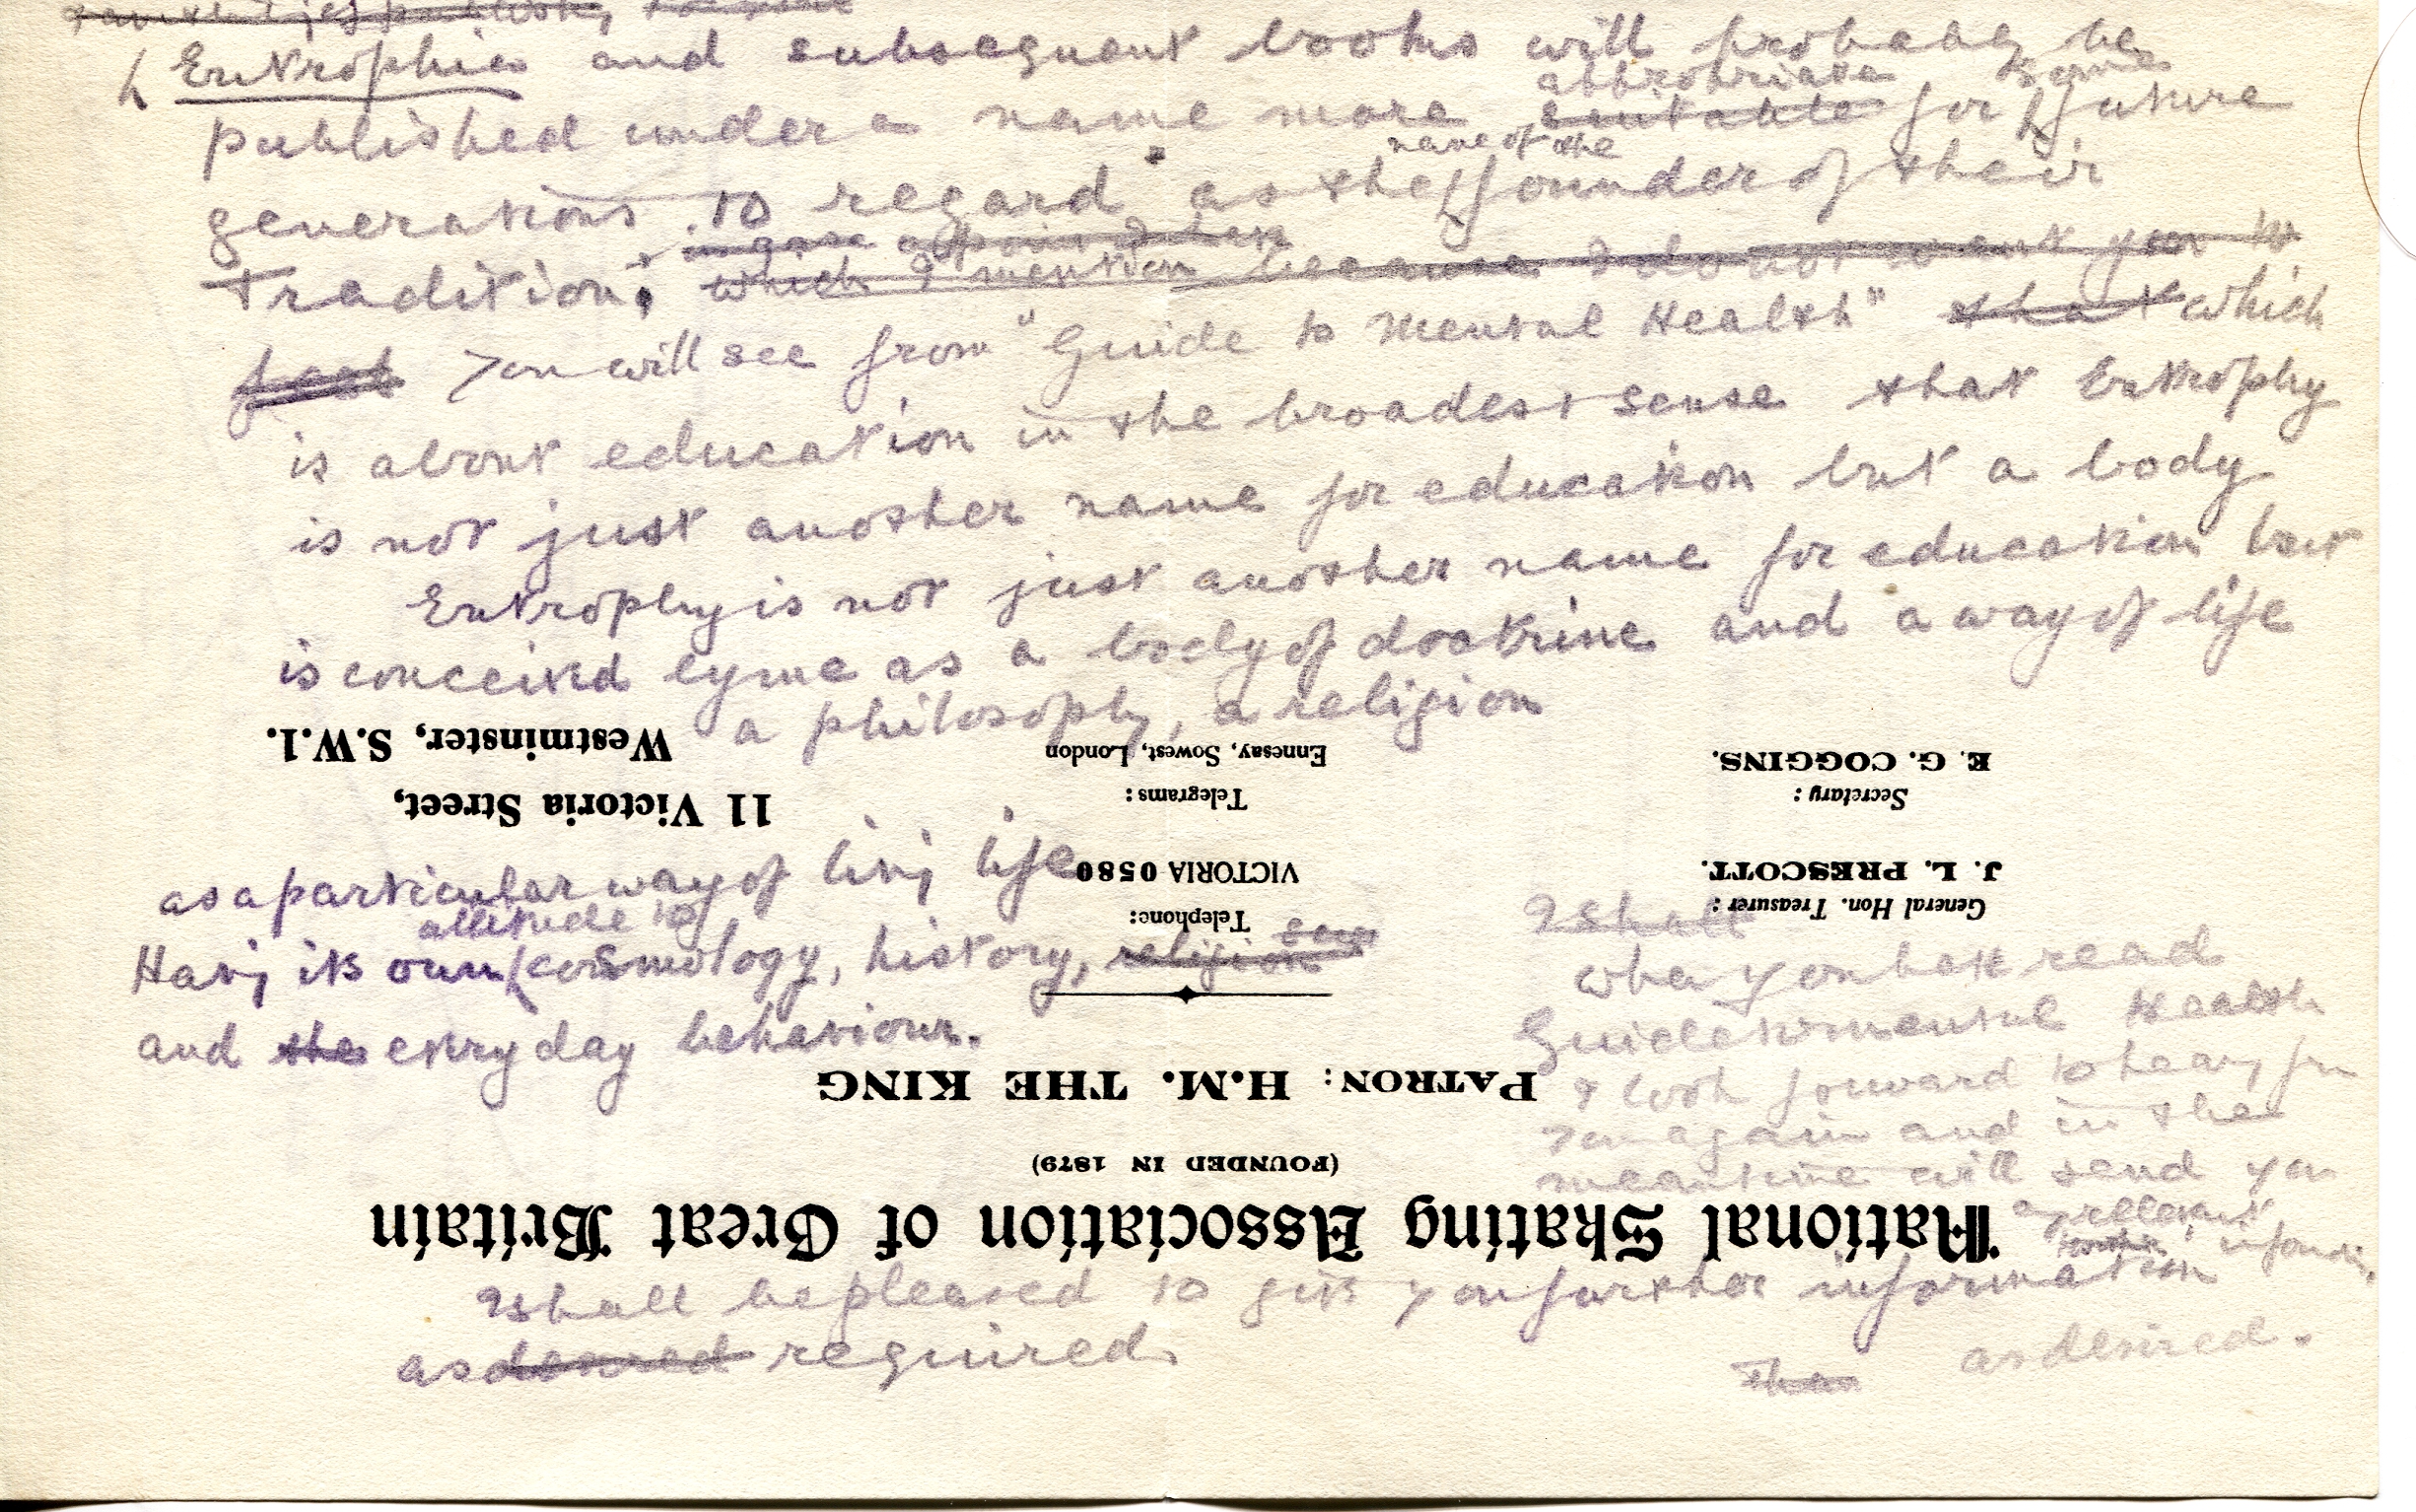 Eutrophia and subsequent books will probably be
appropriate some
published under a name more suitable for future
name of the
generations to regard as the founder of their
Tradition.
which I mention because I do not want you to
feel You will see from "Guide to Mental Health" that which
is about education in the broadest sense that Eutrophy
is not just another name for education but a body
Eutrophy is not just another name for education but
is conceived by me as a body of doctrine and a way of life
a philosophy, a religion
Westminster, S.W.1.
Ennesay, Sowest, London
E. G. COGGINS.
11 Victoria Street,
Telegrams:
Secretary:
as a particular way of livj life
VICTORIA 0580
J. L. PRESCOTT.
attitude to
Telephone:
General Hon. Treasurer:
I shall
Havj its own cosmology, history, religion
when you have read
and the every day behaviour.
Guide to mental Health
PATRON: H.M. THE KING
I look forward to hearj from
you again and in the
(FOUNDED IN 1879)
meantime will send you
National Skating Association of Great Britain
any relevant
I shall be pleased to give you further information
as desired required.
as desired.
Then